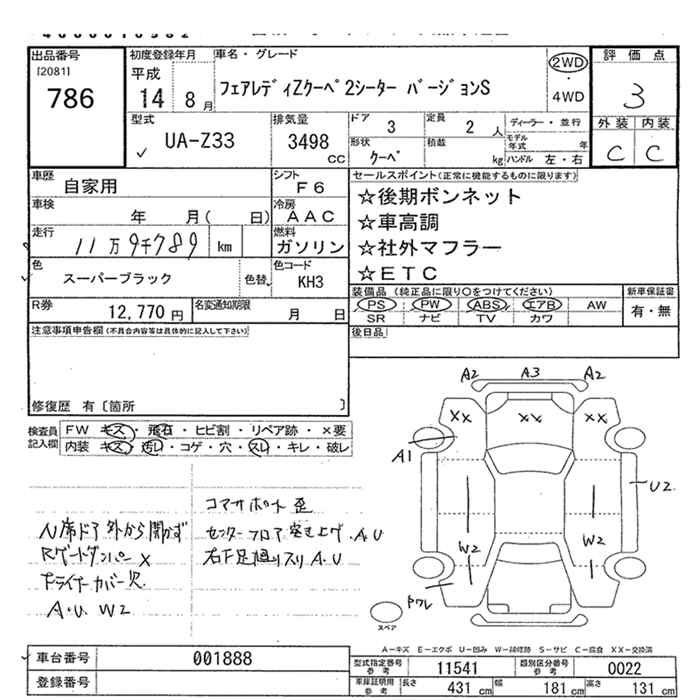 出品番号
[2081]
786
初度登録年月
平成
14年 8月
車名・グレード
フェアレディZクーペ 2シーター バージョンS
2WD
・
4WD
評価点
3
外装 内装
C C
型式
UA-Z33
排気量
3498
CC
ドア 3
定員 2 人
形状 クーペ
積載 kg
ディーラー・並行
モデル年式 年
ハンドル 左・右
車歴 自家用
シフト F6
車検 年 月( 日)
冷房 AAC
走行 11万9千789 km
燃料 ガソリン
色 スーパーブラック 色替
色コード KH3
R券 12,770円
名変通知期限 月 日
セールスポイント(正常に機能するものに限ります)
☆後期ボンネット
☆車高調
☆社外マフラー
☆ETC
装備品 (純正品に限り○をつけてください)
PS PW ABS エアB AW
SR ナビ TV カワ
新車保証書
有・無
後日品
注意事項申告欄(不具合内容等は具体的に記入して下さい)
修復歴 有〔箇所 〕
検査員記入欄
FW キズ・飛石・ヒビ割・リペア跡・×要
内装 キズ・汚れ・コゲ・穴・スレ・キレ・破レ
N席ドア 外から開かず
Rゲートダンパー ×
ドライナーカバー欠
A・U W2
コアサポート 歪
センターフロア 突き上げ A.U
右下足廻りスリ A.U
A2 A3 A2
XX XX XX
A1
U2
W2 W2
ワレ
スペア
A－キズ E－エクボ U－凹み W－補修跡 S－サビ C－腐食 XX－交換済
車台番号 001888
登録番号
型式指定番号 参考 11541
類別区分番号 参考 0022
車庫証明用 参考
長さ 431 cm
幅 181 cm
高さ 131 cm